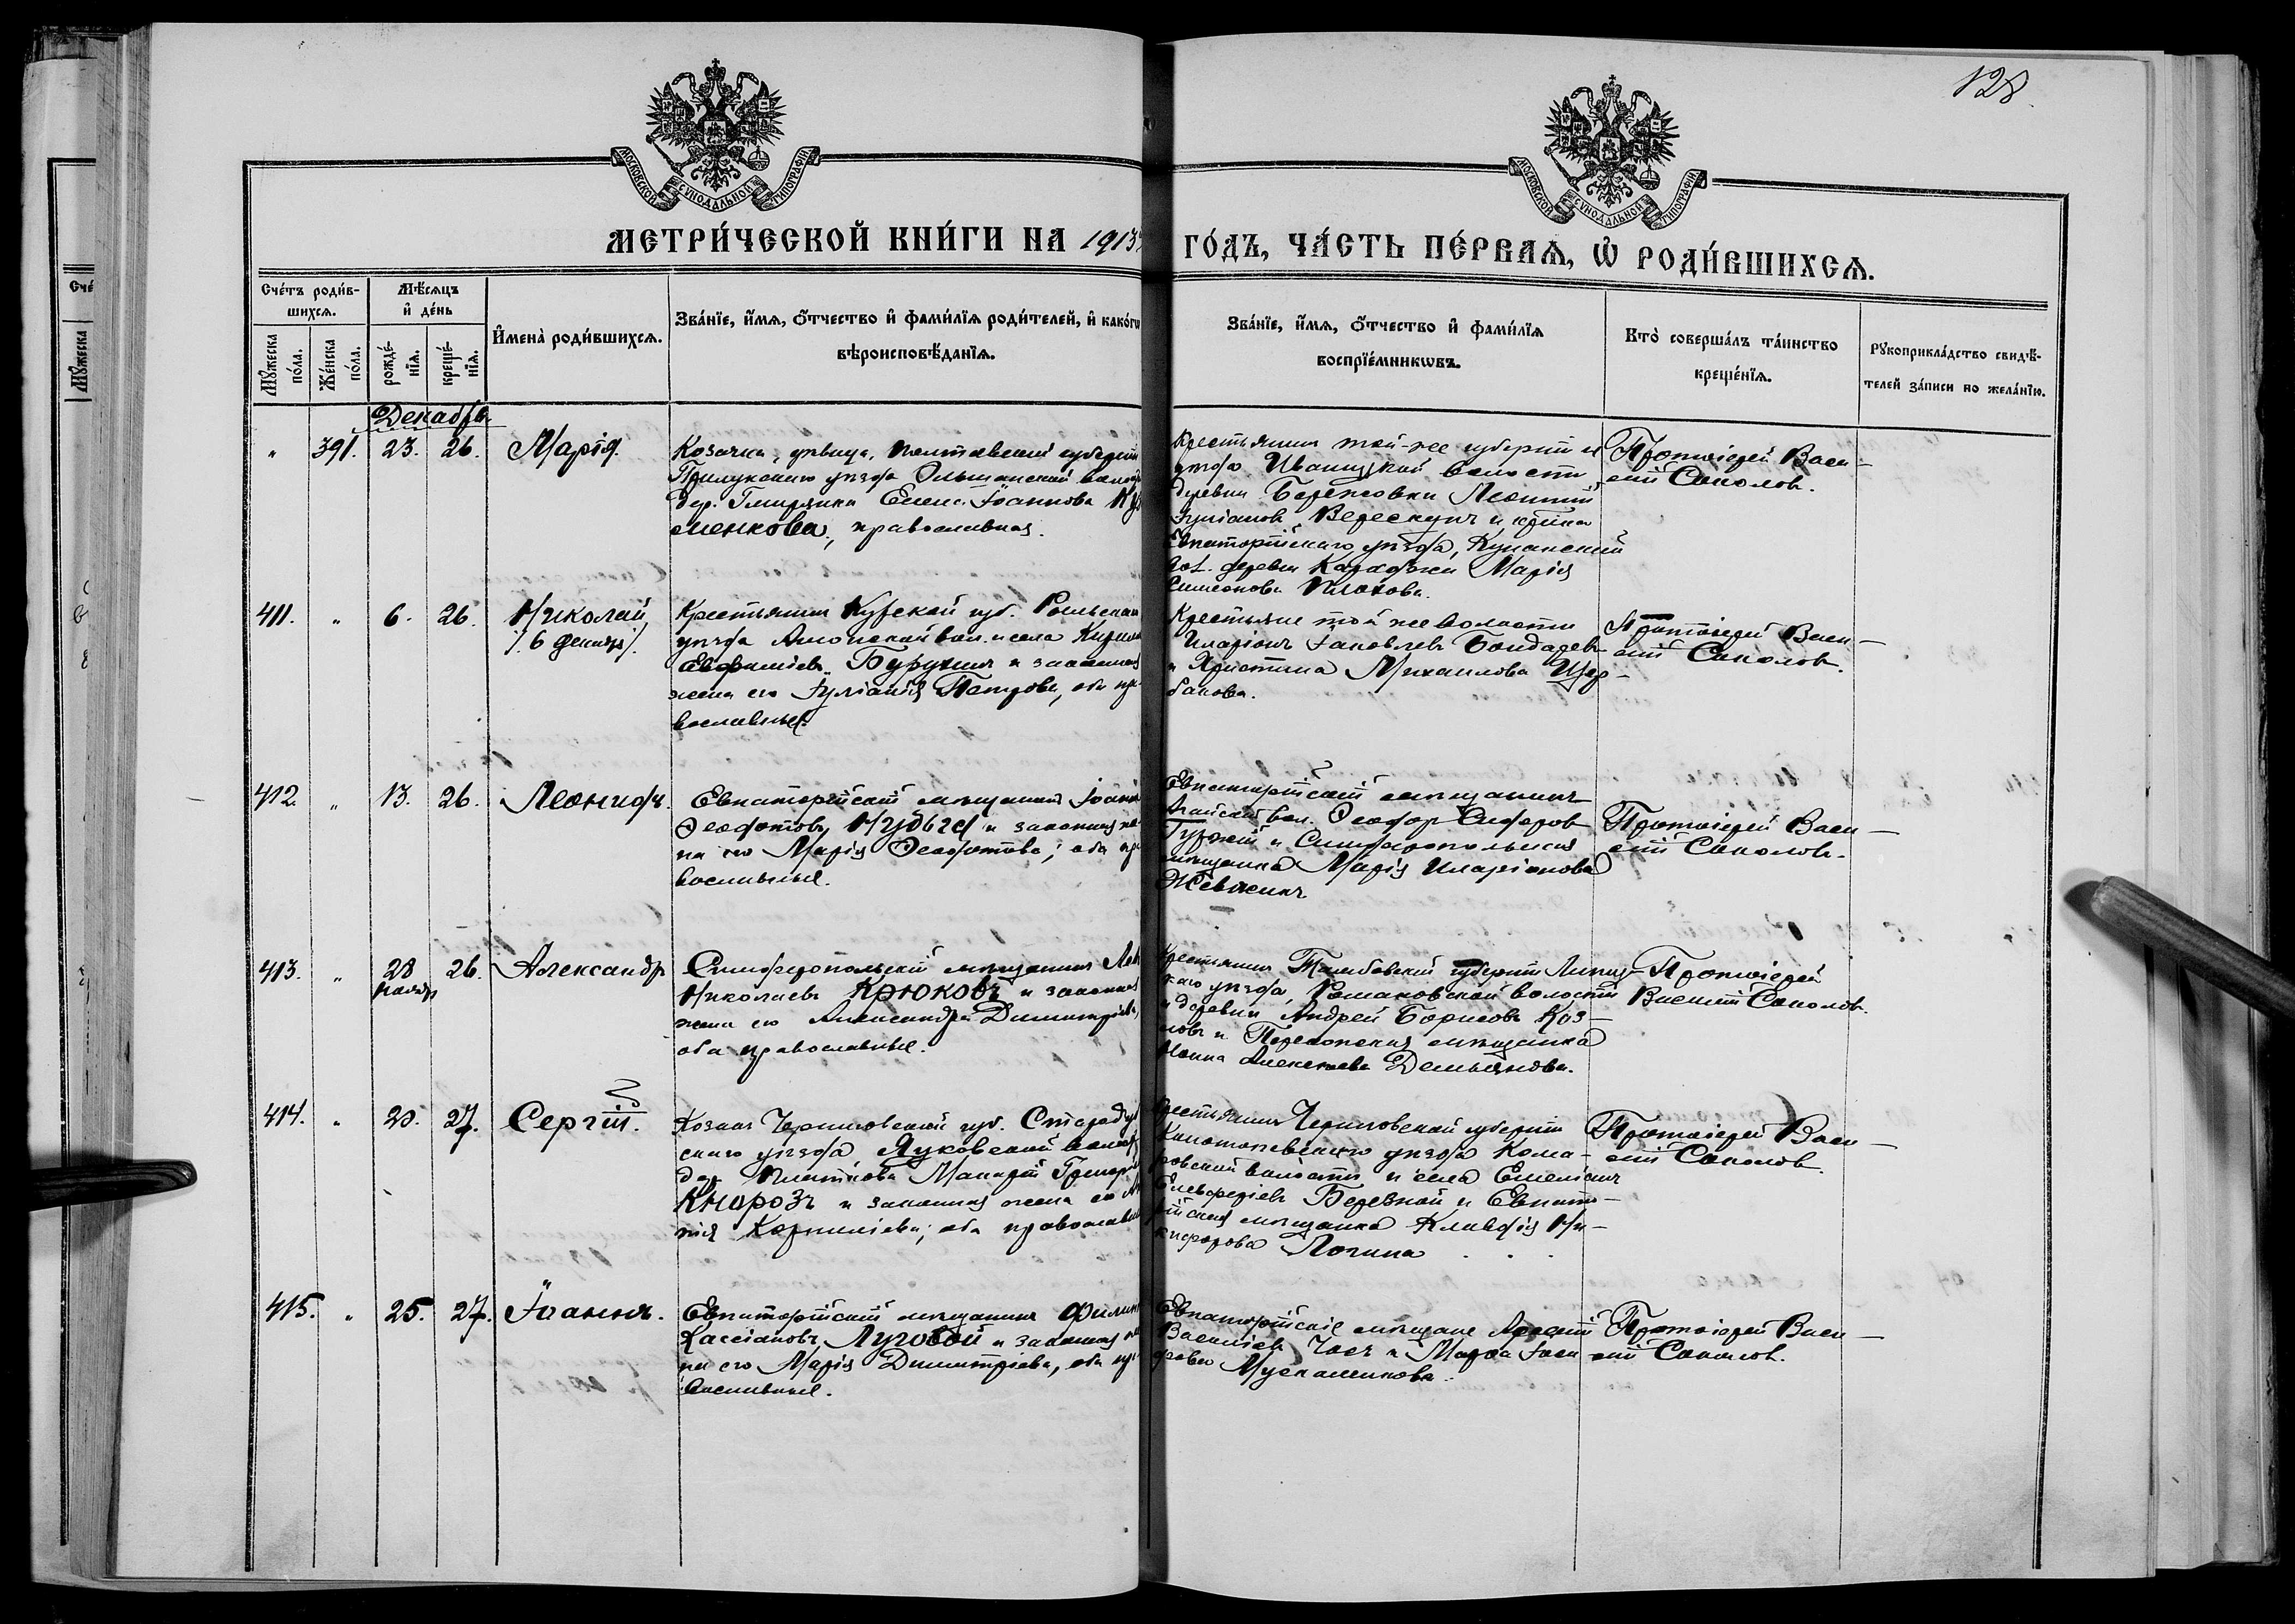 128.
МОСКОВСКОЙ СѴНОДАЛЬНОЙ ТИПОГРАФІИ
МОСКОВСКОЙ СѴНОДАЛЬНОЙ ТИПОГРАФІИ
МЕТРИ́ЧЕСКОЙ КНИ́ГИ НА 1913
ГО́ДЪ, ЧА́СТЬ ПЕ́РВАѦ, Ѡ҆ РОДИ́ВШИХСѦ.
Сче́тъ роди́в-
шихсѧ.
Мꙋ́жеска по́ла.
Же́нска по́ла.
Мѣ́сѧцъ
и҆ де́нь
рожде́-
нїѧ.
креще́-
нїѧ.
И҆мена̀ роди́вшихсѧ.
Зва́нїе, и҆́мѧ, ѻ҆́тчество и҆ фами́лїѧ роди́телей, и҆ како́гѡ
вѣроисповѣ́данїѧ.
Зва́нїе, и҆́мѧ, ѻ҆́тчество и҆ фами́лїѧ
воспрїе́мникѡвъ.
Кто̀ соверша́лъ та́инство
креще́нїѧ.
Рꙋкоприкла́дство свидѣ́-
телей за́писи по жела́нїю.
Декабрь
" 391. 23. 26. Марія.
Козачка, дѣвица, Полтавской губерніи
Прилукскаго уѣзда Ольшанской волос
дер. Гмирянки Елена Іоаннова
менкова, православная.
Крестьянинъ той-же губерніи и
уѣзда Иваницкой волости
деревни Бережовки Леонтій
Іуліановъ Верескунъ и
Евпаторійскаго уѣзда, Кунанской
вол. деревни Караджи Марія
Симеонова Плохова.
Протоіерей Васи-
лій Соколовъ.
411. " 6. 26. Николай
/. 6 декабря /.
Крестьянинъ Курской губ. Рыльскаго
уѣзда Амонской вол. и села
Евфиміевъ Бурухинъ и законная
жена его Іуліанія Петрова, оба пра-
вославные.
Крестьяне той же волости
Иларіонъ Іаковлевъ Бондаревъ
и Христина Михаилова Щер-
бакова.
Протоіерей Васи-
лій Соколовъ.
412. " 13. 26. Леонидъ.
Евпаторійскій мѣщанинъ Іоаннъ
Ѳеодотовъ и законная же-
на его Марія Ѳеодотова; оба пра-
вославные.
Евпаторійскій мѣщанинъ
вол. Ѳеодоръ Сидоровъ
Гуржій и Симферопольская
мѣщанка Марія Иларіонова
Жевжикъ
Протоіерей Васи-
лій Соколовъ.
413. " 28 26. Александръ
ноября
Симферопольскій мѣщанинъ
Николаевъ Крюковъ и законная
жена его Александра Димитріева,
оба православные.
Крестьянинъ Тамбовской губерніи Липец-
каго уѣзда, Романовской волости
и деревни Андрей Борисовъ Коз-
ловъ и Перекопская мѣщанка
Нонна Алексеева Демьянова.
Протоіерей
Василій Соколовъ.
414. " 20. 27. Сергій.
Козакъ Черниговской губ. Стародуб
скаго уѣзда, Луковской волос
дер. Платкова Макарій Григорі
Кнорозъ и законная жена его
пія Корниліева; оба православн
Крестьянинъ Черниговской губерніи
Конотопскаго уѣзда Кома-
ровской волости и села Емеліанъ
Елевферіевъ Беревной и Евпато-
рійская мѣщанка Клавдія Ни-
кифорова Логина
Протоіерей Васи-
лій Соколовъ.
415. " 25. 27. Іоаннъ.
Евпаторійскій мѣщанинъ Филип
Кассіановъ Луговой и законная же
на его Марія Димитріева, оба пра-
вославные.
Евпаторійскіе мѣщане Арсеній
Василіевъ и Марѳа Іоси
фова Мускашикова.
Протоіерей Васи-
лій Соколовъ.